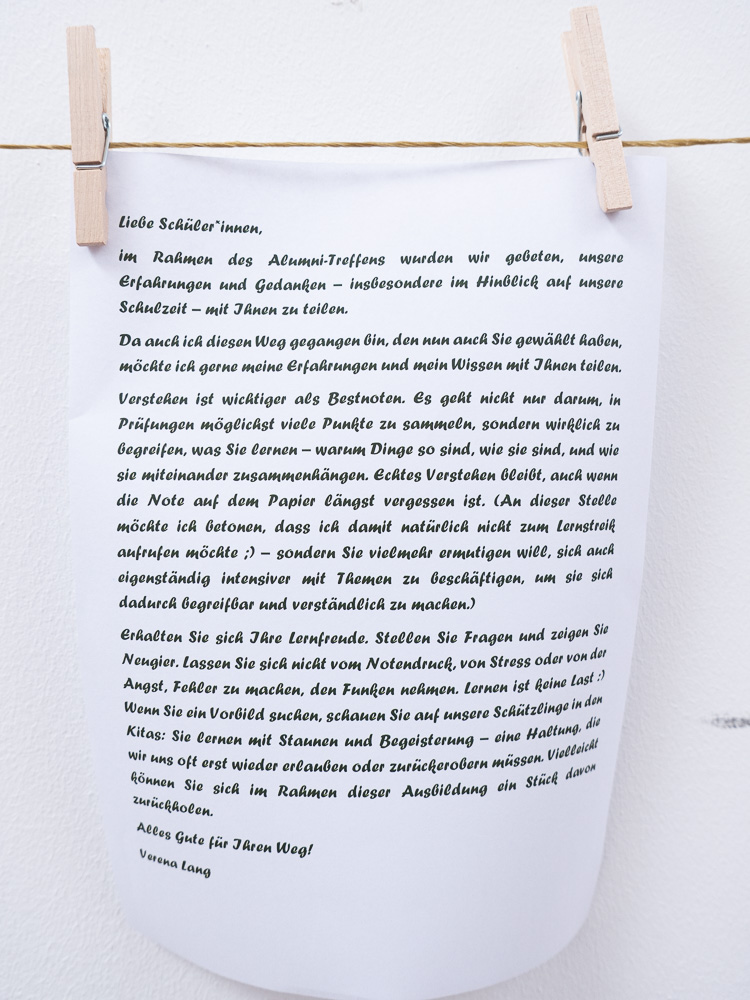 Liebe Schüler*innen,
im Rahmen des Alumni-Treffens wurden wir gebeten, unsere
Erfahrungen und Gedanken – insbesondere im Hinblick auf unsere
Schulzeit – mit Ihnen zu teilen.
Da auch ich diesen Weg gegangen bin, den nun auch Sie gewählt haben,
möchte ich gerne meine Erfahrungen und mein Wissen mit Ihnen teilen.
Verstehen ist wichtiger als Bestnoten. Es geht nicht nur darum, in
Prüfungen möglichst viele Punkte zu sammeln, sondern wirklich zu
begreifen, was Sie lernen – warum Dinge so sind, wie sie sind, und wie
sie miteinander zusammenhängen. Echtes Verstehen bleibt, auch wenn
die Note auf dem Papier längst vergessen ist. (An dieser Stelle
möchte ich betonen, dass ich damit natürlich nicht zum Lernstreik
aufrufen möchte ;) – sondern Sie vielmehr ermutigen will, sich auch
eigenständig intensiver mit Themen zu beschäftigen, um sie sich
dadurch begreifbar und verständlich zu machen.)
Erhalten Sie sich Ihre Lernfreude. Stellen Sie Fragen und zeigen Sie
Neugier. Lassen Sie sich nicht vom Notendruck, von Stress oder von der
Angst, Fehler zu machen, den Funken nehmen. Lernen ist keine Last :)
Wenn Sie ein Vorbild suchen, schauen Sie auf unsere Schützlinge in den
Kitas: Sie lernen mit Staunen und Begeisterung – eine Haltung, die
wir uns oft erst wieder erlauben oder zurückerobern müssen. Vielleicht
können Sie sich im Rahmen dieser Ausbildung ein Stück davon
zurückholen.
Alles Gute für Ihren Weg!
Verena Lang